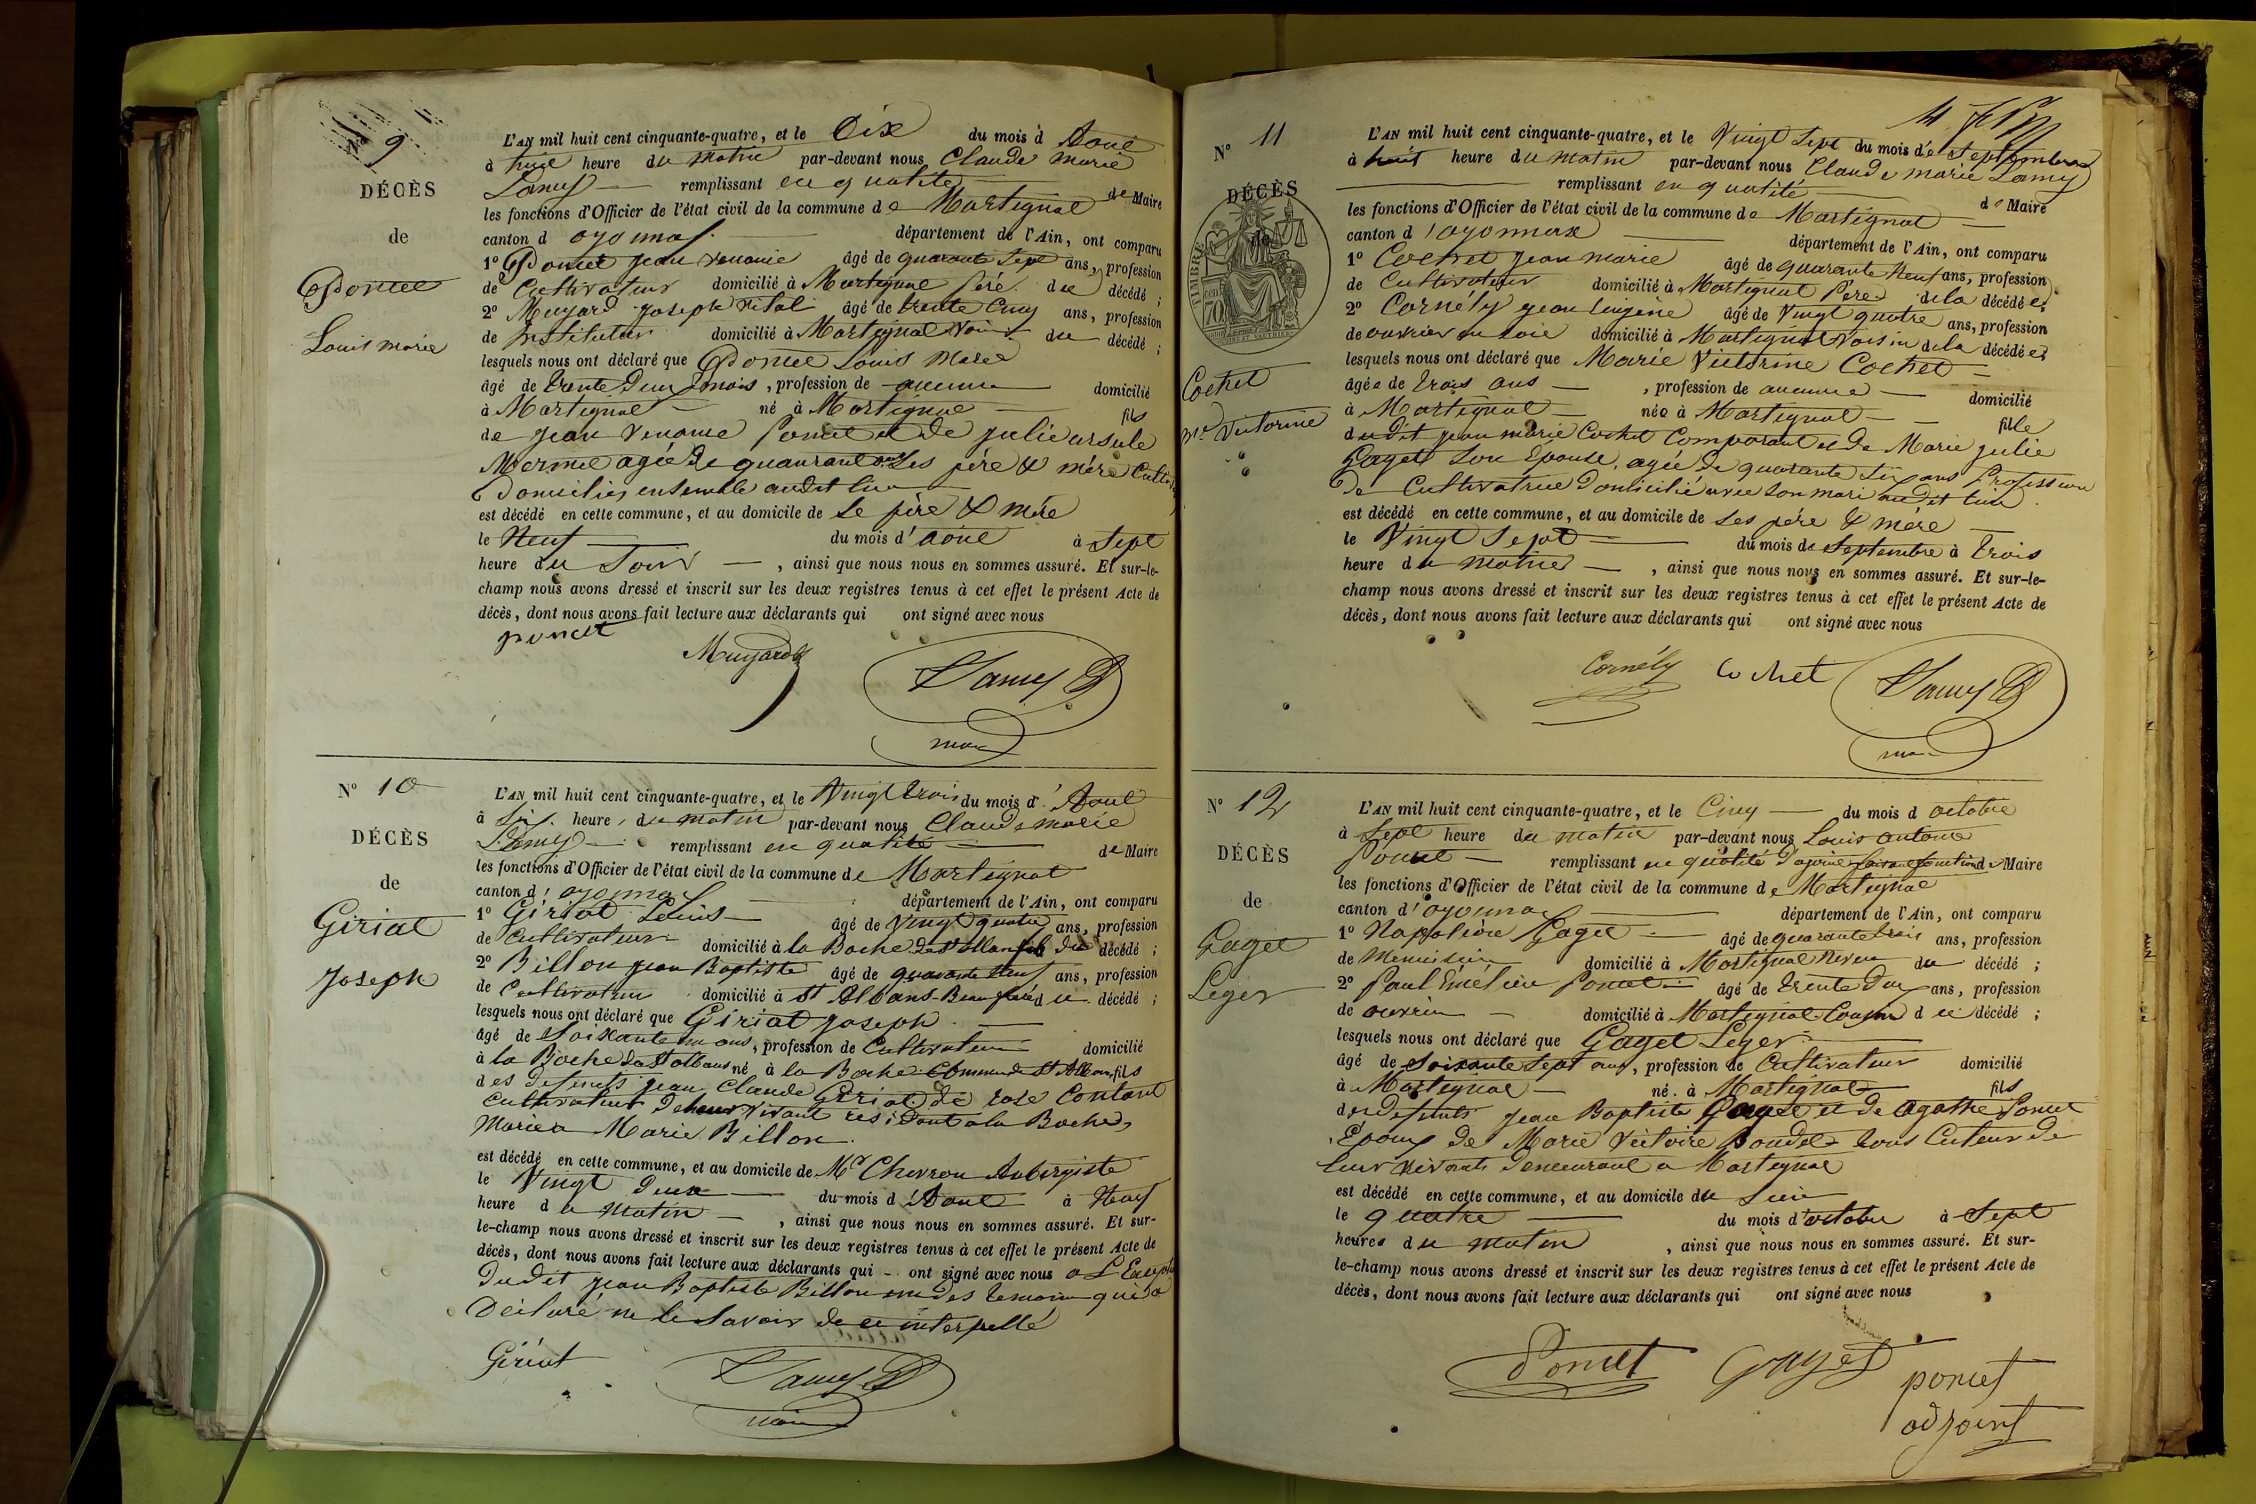 Nº 9
DÉCÈS
de
Poncet
Louis marie
L'AN mil huit cent cinquante-quatre, et le Dix du mois d Aout
à huit heure du matin par-devant nous Claude marie
Lamy remplissant en qualité de Maire
les fonctions d'Officier de l'état civil de la commune de Martignat
canton d oyonnax département de l'Ain, ont comparu
1º Poncet jean venance âgé de quarante sept ans, profession
de Cultivateur domicilié à Martignat père du décédé ;
2º Muyard joseph vital âgé de trente cinq ans, profession
de instituteur domicilié à Martignat voisin du décédé ;
lesquels nous ont déclaré que Poncet Louis Marie
âgé de trente deux mois, profession de aucune domicilié
à Martignat né à Martignat fils
de jean venance Poncet et de julie ursule
Mermet agée de quarante ans Ses père & mère
Domiciliés ensemble audit lieu
est décédé en cette commune, et au domicile de Se père & mère
le Neuf du mois d'aout à sept
heure du Soir, ainsi que nous nous en sommes assuré. Et sur-le-
champ nous avons dressé et inscrit sur les deux registres tenus à cet effet le présent Acte de
décès, dont nous avons fait lecture aux déclarants qui ont signé avec nous
poncet
Muyard
Lamy
maire
Nº 10
DÉCÈS
de
Giriat
Joseph
L'AN mil huit cent cinquante-quatre, et le Vingt trois du mois d'Aout
à six heure du matin par-devant nous Claude marie
Lamy remplissant en qualité de Maire
les fonctions d'Officier de l'état civil de la commune de Martignat
canton d'oyonnax département de l'Ain, ont comparu
1º Giriat Louis âgé de vingt quatre ans, profession
de cultivateur domicilié à la Boche de St alban fils du décédé ;
2º Billon jean Baptiste âgé de quarante neuf ans, profession
de Cultivateur domicilié à St Albans Beau frère du décédé ;
lesquels nous ont déclaré que Giriat joseph
âgé de Soixante un ans, profession de Cultivateur domicilié
à la Boche de St albans né à la Boche Commune de St Alban fils
des defunts jean Claude Giriat de rose Contant
cultivateurs de leur vivant residant a la Boche,
Marié a Marie Billon.
est décédé en cette commune, et au domicile de Mr Chevron Aubergiste
le Vingt deux du mois d'Aout à Neuf
heure du matin, ainsi que nous nous en sommes assuré. Et sur-
le-champ nous avons dressé et inscrit sur les deux registres tenus à cet effet le présent Acte de
décès, dont nous avons fait lecture aux déclarants qui ont signé avec nous a L'Exception
Dudit jean Baptiste Billon un des temoin qui a
Déclaré ne le Savoir de ce interpellé
Giriat
Lamy
maire
Nº 11
DÉCÈS
de
TIMBRE
70
Cochet
Me Victorine
L'AN mil huit cent cinquante-quatre, et le Vingt Sept du mois de Septembre
à huit heure du matin par-devant nous Claude marie Lamy
remplissant en qualité de Maire
les fonctions d'Officier de l'état civil de la commune de Martignat
canton d'oyonnax département de l'Ain, ont comparu
1º Cochet jean marie âgé de quarante neuf ans, profession
de Cultivateur domicilié à Martignat père de la décédée ;
2º Cornély jean Eugène âgé de Vingt quatre ans, profession
de ouvrier en soie domicilié à Martignat Voisin de la décédée ;
lesquels nous ont déclaré que Marie Victorine Cochet
âgée de trois ans, profession de aucune domicilié
à Martignat née à Martignat fille
dudit jean marie Cochet Comparant et de Marie julie
Gaget Son Epouse, agée de quarante six ans Profession
de Cultivatrice Domicilié avec son mari audit lieu
est décédé en cette commune, et au domicile de Ses père & mère
le Vingt Sept du mois de Septembre à trois
heure du matin, ainsi que nous nous en sommes assuré. Et sur-le-
champ nous avons dressé et inscrit sur les deux registres tenus à cet effet le présent Acte de
décès, dont nous avons fait lecture aux déclarants qui ont signé avec nous
Cornély Cochet Lamy
maire
Nº 12
DÉCÈS
de
Gaget
Leger
L'AN mil huit cent cinquante-quatre, et le Cinq du mois d octobre
à Sept heure du matin par-devant nous Louis antoine
Poncet remplissant en qualité d'ajoint faisant fonction de Maire
les fonctions d'Officier de l'état civil de la commune de Martignat
canton d'oyonnax département de l'Ain, ont comparu
1º Napoléon Gaget âgé de quarante trois ans, profession
de Menuisier domicilié à Martignat neveu du décédé ;
2º Paul Emélien Poncet âgé de trente Deux ans, profession
de ouvrier domicilié à Martignat Cousin du décédé ;
lesquels nous ont déclaré que Gaget Leger
âgé de soixante sept ans, profession de Cultivateur domicilié
à Martignat né à Martignat fils
des defunts jean Baptiste Gaget et de Agathe Poncet
Epoux de Marie Victoire Boudet tous Cuteur de
leur vivants demeurant a Martignat
est décédé en cette commune, et au domicile du Sien
le quatre du mois d'octobre à Sept
heures du matin, ainsi que nous nous en sommes assuré. Et sur-
le-champ nous avons dressé et inscrit sur les deux registres tenus à cet effet le présent Acte de
décès, dont nous avons fait lecture aux déclarants qui ont signé avec nous
Poncet Gaget poncet
adjoint